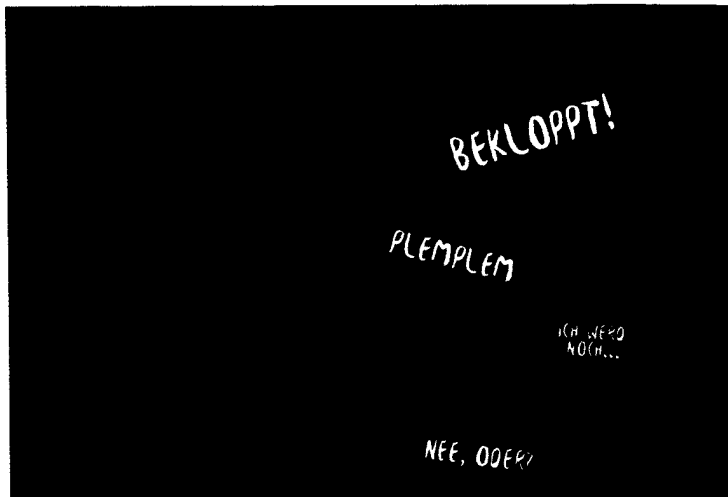 BEKLOPPT!
PLEMPLEM
ICH WERD
NOCH...
NEE, ODER?